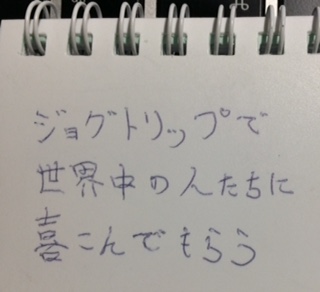 ジョグトリップで
世界中の人たちに
喜こんでもらう